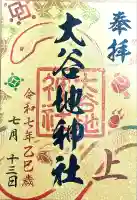 奉拝
大谷地神社
大谷地神社
上
令和七年乙巳歳
七月十三日